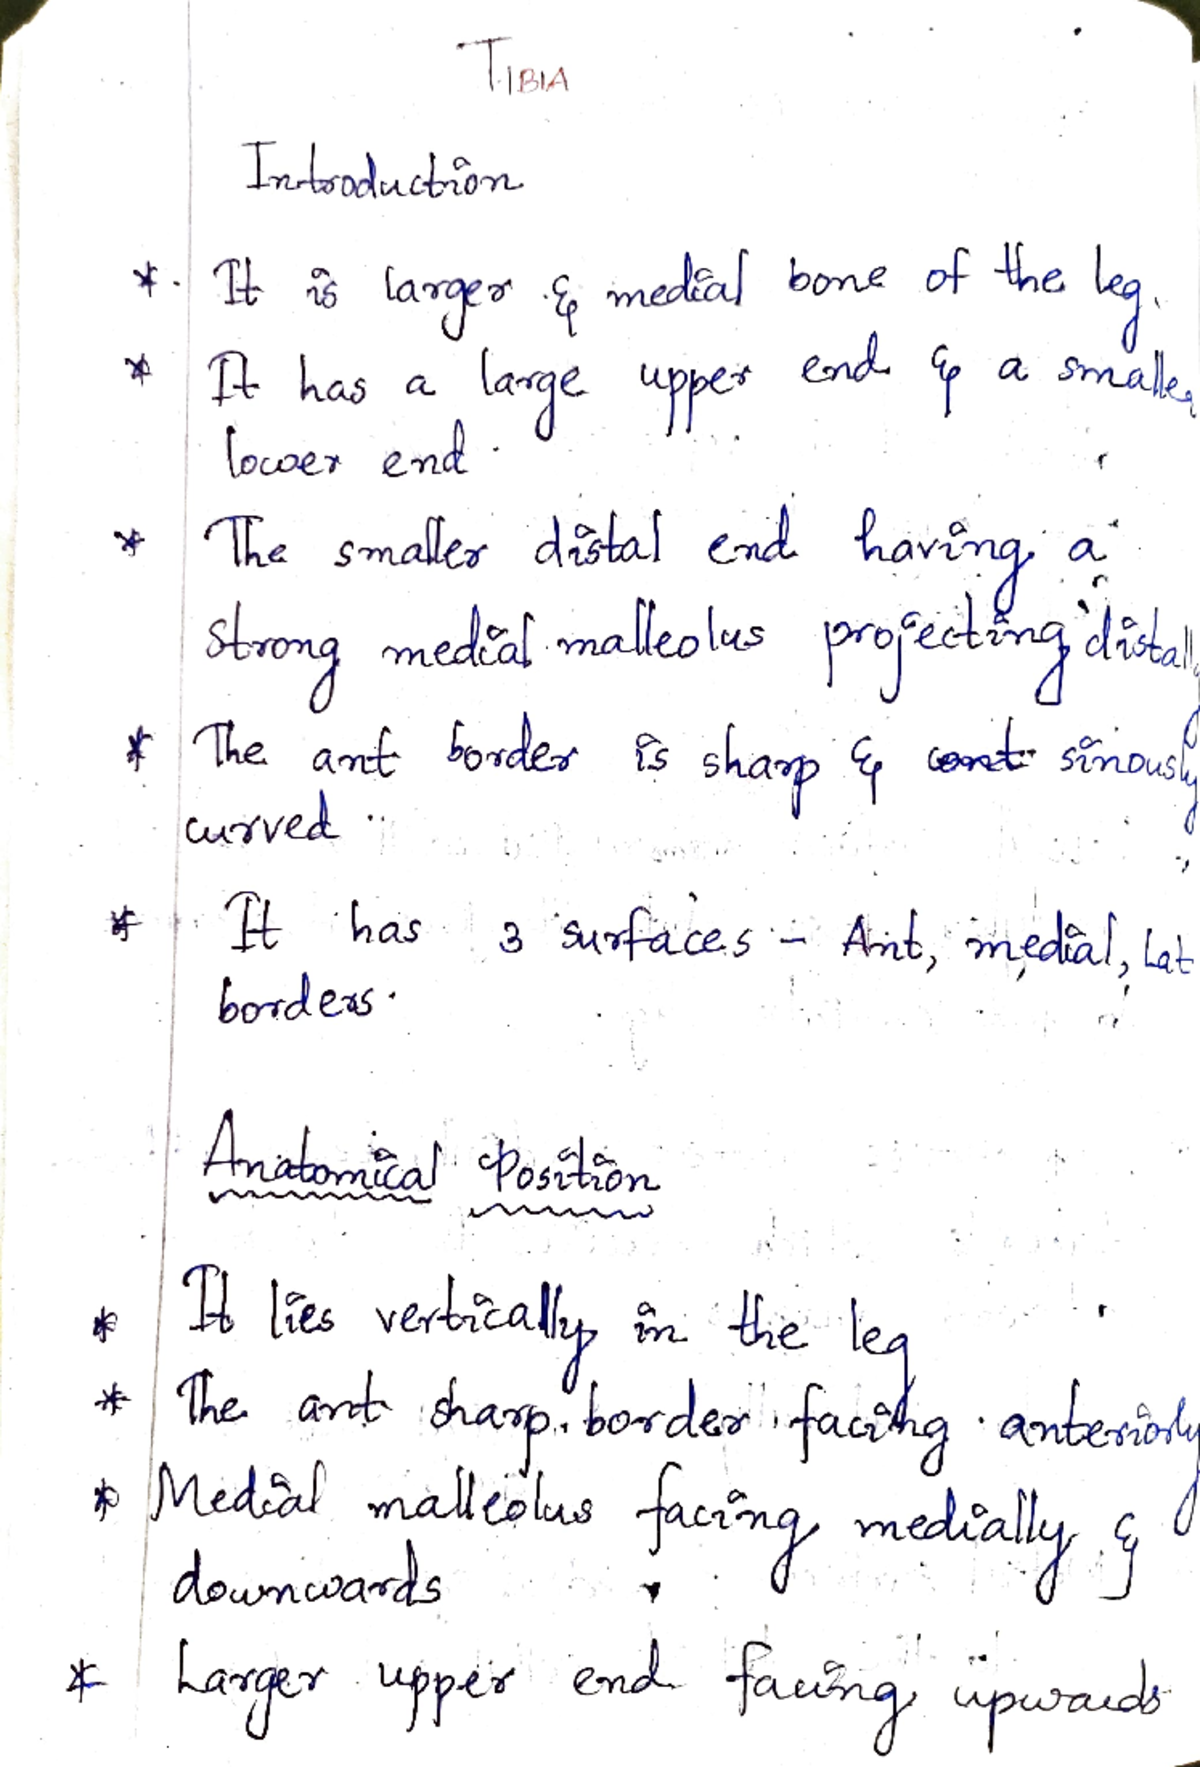 TIBIA
Introduction
* It is larger & medial bone of the leg.
* It has a large upper end & a smaller
lower end.
* The smaller distal end having a
strong medial malleolus projecting distally
* The ant border is sharp & sinously
curved
* It has 3 surfaces - Ant, medial, Lat
borders.
Anatomical Position
* It lies vertically in the leg
* The ant sharp border facing anteriorly
* Medial malleolus facing medially &
downwards
* Larger upper end facing upwards